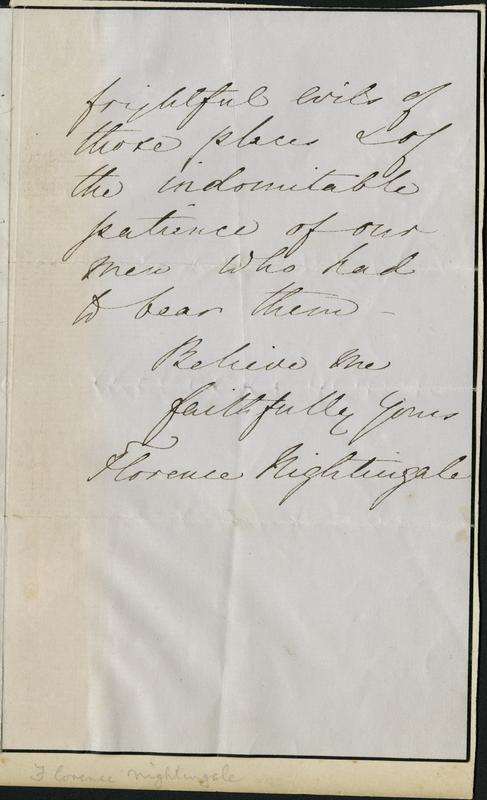 frightful evils of
those places & of
the indomitable
patience of our
men who had
to bear them -
Believe me
faithfully yours
Florence Nightingale
Florence Nightingale